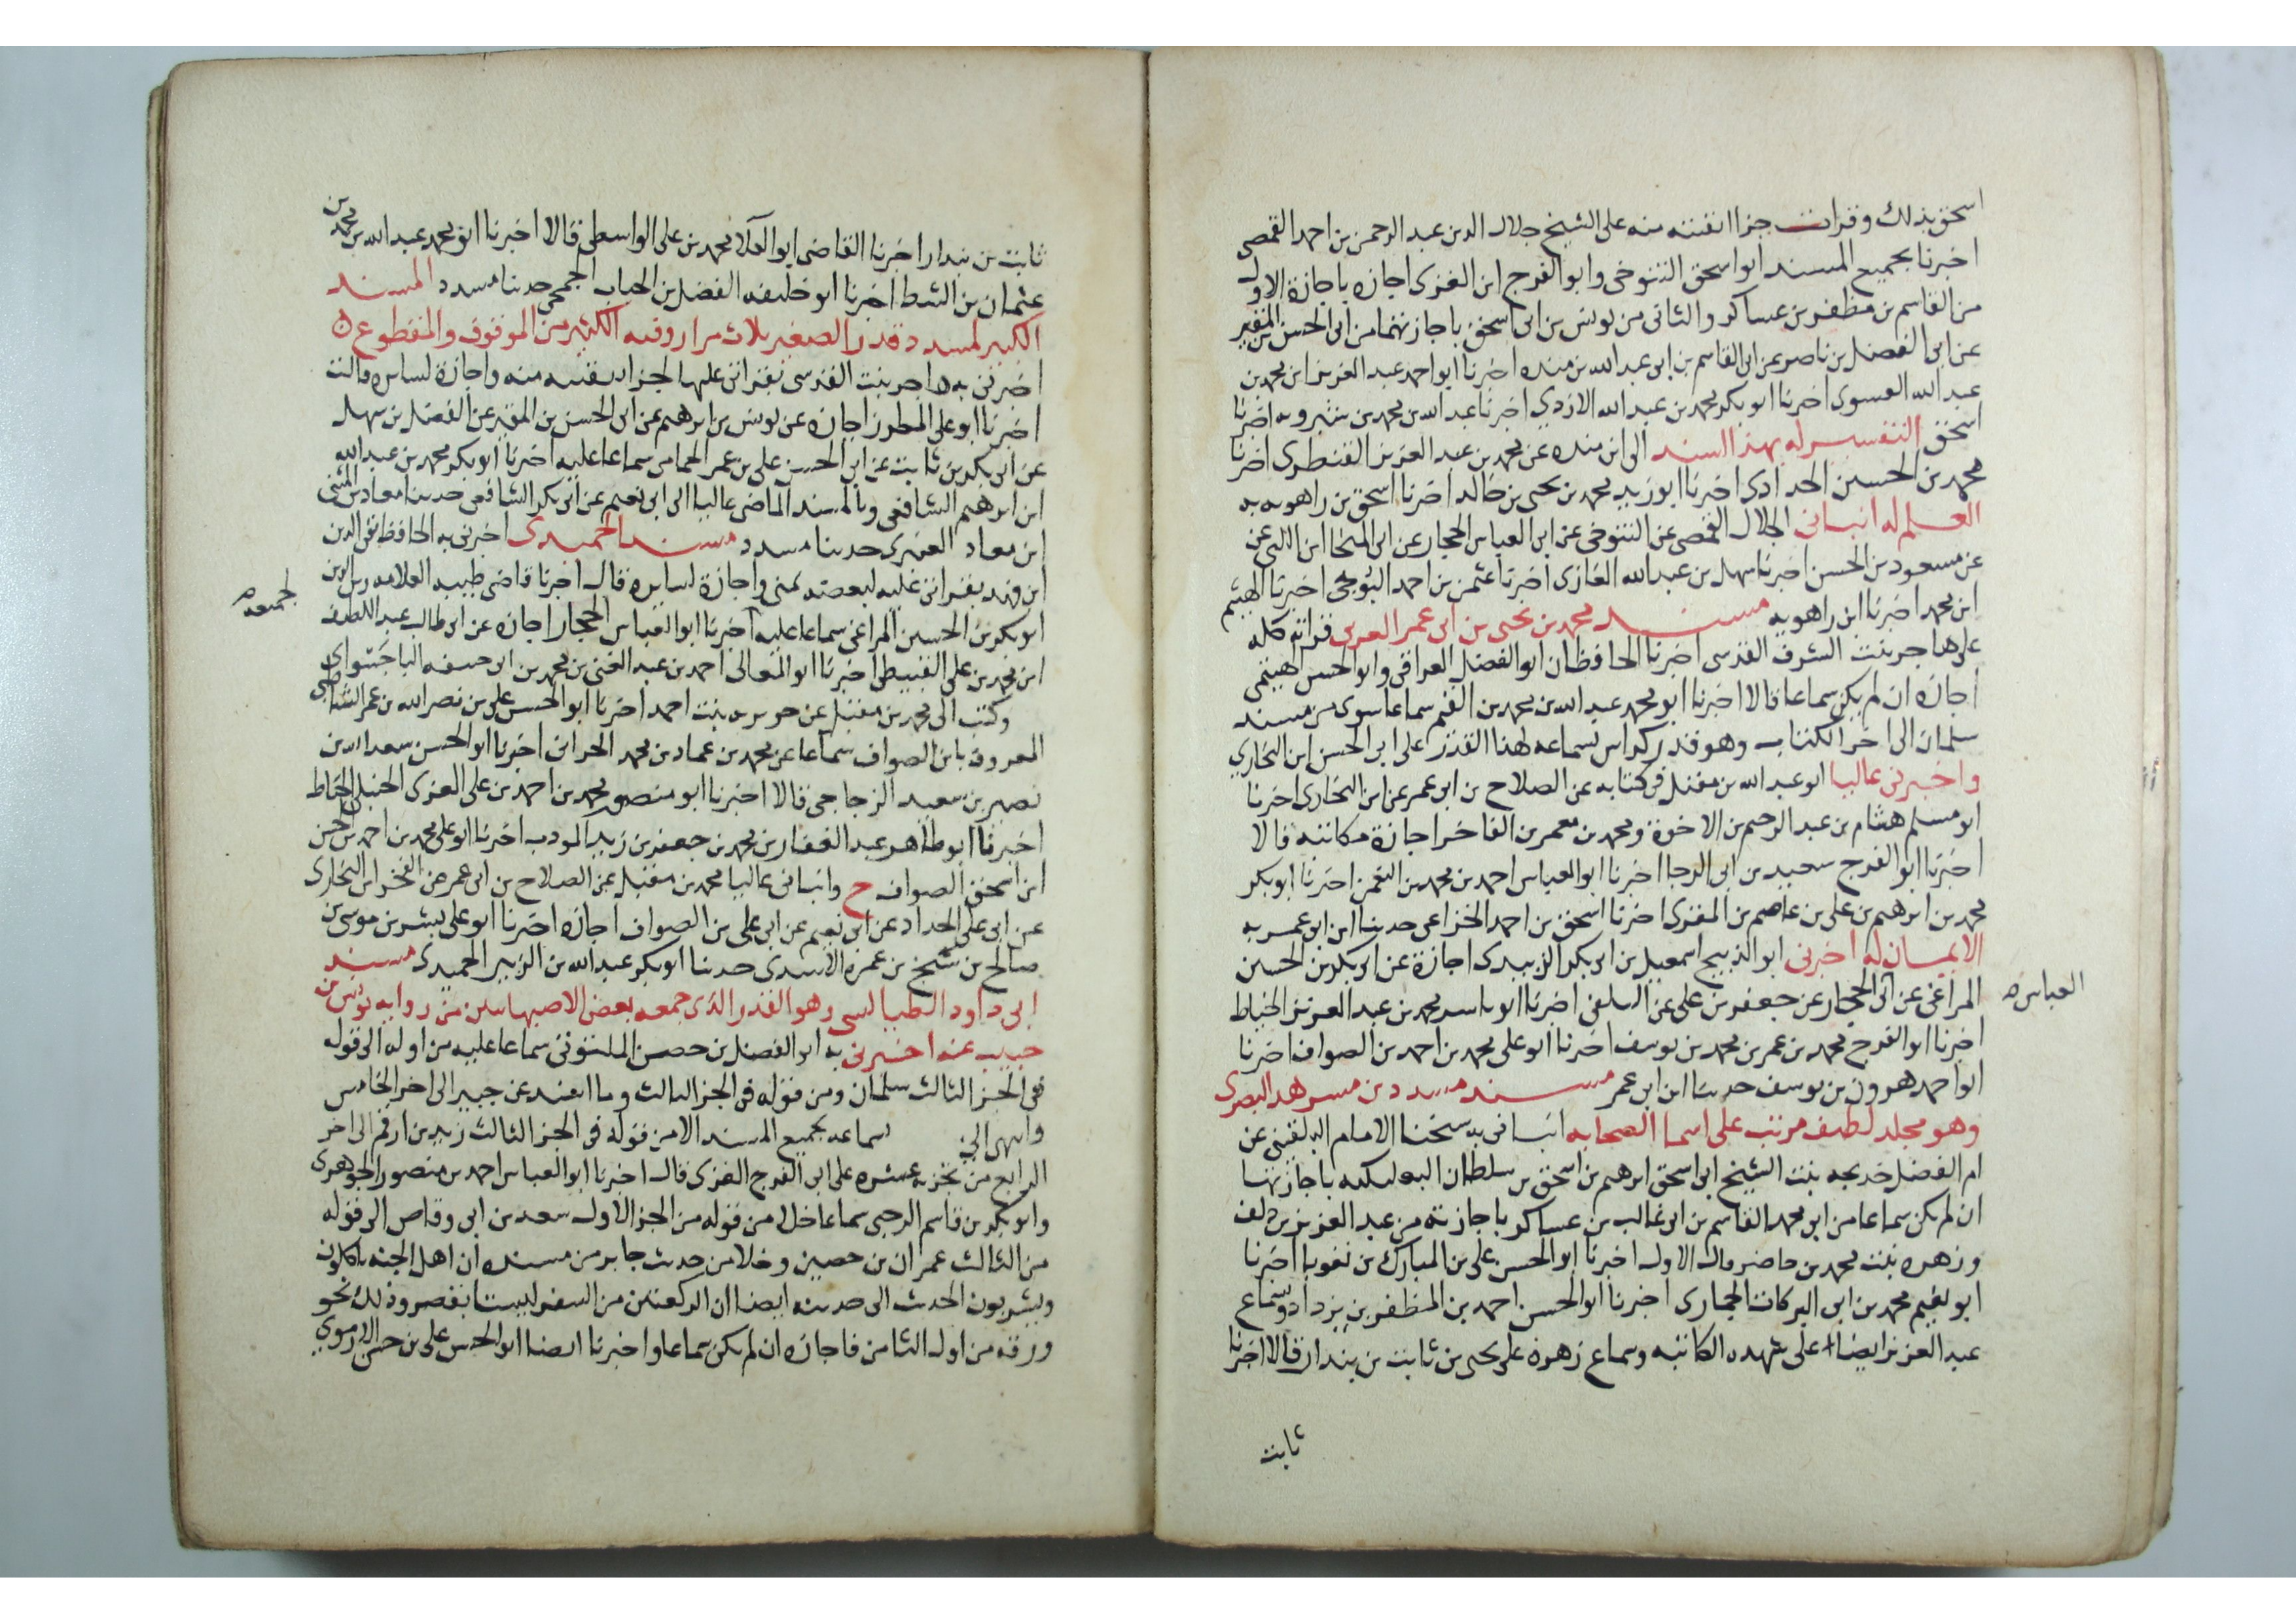 اسحق بذلك وقرات جزا انتقيته منه على الشيخ جلال الدين عبد الرحمن بن احمد القمصى
اخبرنا بجميع المسند ابو اسحق التنوخى وابو الفرج ابن الغزى اجازه باجازة الاول
من القاسم بن مظفر بن عساكر والثانى من يونس بن ابى اسحق باجازتهما من ابى الحسن بن المقير
عن ابى الفضل بن ناصر عن ابى القاسم بن ابى عبد الله بن منده اخبرنا ابو احمد عبد العزيز ابن محمد بن
عبد الله الفسوى اخبرنا ابو بكر محمد بن عبد الله الازدى اخبرنا عبد الله بن محمد بن شيرويه اخبرنا
اسحق التفسير له بهذا السند الى ابن منده عن محمد بن عبد العزيز القنطرى اخبرنا
محمد بن الحسين الحدادى اخبرنا ابو زيد محمد بن يحيى بن خالد اخبرنا اسحق بن راهويه به
العلم له انبانى الجلال القمصى عن التنوخى عن ابى العباس الحجار عن ابى المنجا ابن اللتى عن
عن مسعود بن الحسن اخبرنا سهل بن عبد الله الغازى اخبرنا عثمن بن احمد البرجى اخبرنا الهيثم
ابن محمد اخبرنا ابن راهويه مسند محمد بن يحيى بن ابى عمر العدنى قراته كله
على هاجر بنت الشرف القدسى اخبرنا الحافظان ابو الفضل العراقى وابو الحسن الهيثمى
اجازه ان لم يكن سماعا قالا اخبرنا ابو محمد عبد الله بن محمد بن القيم سماعا سوى من مسند
سلمان الى اخر الكتاب وهو قدر كراس بسماعه لهذا القدر على ابى الحسن ابن البخاري
واخبرنى عاليا ابو عبد الله بن مقبل فى كتابه عن الصلاح بن ابى عمر عن ابن البخارى اخبرنا
ابو مسلم هشام بن عبد الرحيم بن الاخوة ومحمد بن معمر بن الفاخر اجازة مكاتبه قالا
اخبرنا ابو الفرج سعيد بن ابى الرجا اخبرنا ابو العباس احمد بن محمد بن النعمن اخبرنا ابو بكر
محمد بن ابرهيم بن على بن عاصم بن المقرى اخبرنا اسحق بن احمد الخزاعى حدثنا ابن ابى عمر به
الايمان له اخبرنى ابو الذبيح اسمعيل بن ابى بكر الزبيدى اجازة عن ابى بكر بن الحسين
المراغى عن ابى الحجار عن جعفر بن على عن السلفى اخبرنا ابو ياسر محمد بن عبد العزيز الخياط
العباس صح
اخبرنا ابو الفرج محمد بن عمر بن محمد بن يوسف اخبرنا ابو على محمد بن احمد بن الصواف اخبرنا
ابو احمد هرون بن يوسف حدثنا ابن ابى عمر مسند مسدد بن مسرهد البصرى
وهو مجلد لطيف مرتب على اسما الصحابه انبانى به شيخنا الامام البلقينى عن
ام الفضل خديجه بنت الشيخ ابى اسحق ابرهيم بن اسحق بن سلطان البعلبكيه باجازتها
ان لم يكن سماعا من ابى محمد القاسم بن ابى غالب بن عساكر باجازته من عبد العزيز بن دلف
وزهره بنت محمد بن حاضر قال الاول اخبرنا ابو الحسن على بن المبارك بن نغوبا اخبرنا
ابو نعيم محمد بن ابى البركات الجمارى اخبرنا ابو الحسن احمد بن المظفر بن يزداد وسماع
عبد العزيز ايضا على شهده الكاتبه وسماع زهره على يحيى بن ثابت بن بندار قالا اخبرنا
ثابت
ثابت بن بندار اخبرنا القاضى ابو العلا محمد بن على الواسطى قالا اخبرنا ابو محمد عبد الله بن محمد بن
عثمان بن السقا اخبرنا ابو خليفه الفضل بن الحباب الجمحى حدثنا مسدد المسند
الكبير لمسدد قدر الصغير ثلاث مرار وفيه الكثير من الموقوف والمقطوع
اخبرتنى به هاجر بنت القدسى بقراتى عليها لجزا انتقيته منه واجازة لسايره قالت
اخبرنا ابو على المطرز اجازه عن يونس بن ابرهيم عن ابى الحسن بن المقير عن الفضل بن سهل
عن ابى بكر بن ثابت عن ابى الحسن على بن عمر الحمامى سماعا عليه اخبرنا ابو بكر محمد بن عبد الله
ابن ابرهيم الشافعى وبالسند الماضى عاليا الى ابى نعيم عن ابى بكر الشافعى حدثنا معاذ بن المثنى
ابن معاذ العنبرى حدثنا مسدد مسند الحميدى اخبرنى به الحافظ تقى الدين
ابن فهد بقراتى عليه لبعضه بمنى واجازة لسايره قال اخبرنا قاضى طيبه العلامه زين الدين
لجميعه صح
ابو بكر بن الحسين المراغى سماعا عليه اخبرنا ابو العباس الحجار اجازه عن ابى طالب عبد اللطيف
ابن محمد بن على القبيطى اخبرنا ابو المعالى احمد بن عبد الغنى بن محمد بن ابى حنيفه الباجسراى
وكتب الى محمد بن مقبل عن جويريه بنت احمد اخبرنا ابو الحسن على بن نصر الله بن عمر الشاطبى
المعروف بابن الصواف سماعا عن محمد بن عماد بن محمد الحرانى اخبرنا ابو الحسن سعد الله بن
نصر بن سعيد الزجاجى قالا اخبرنا ابو منصور محمد بن احمد بن على المقرى الحنبلى الخياط
اخبرنا ابو طاهر عبد الغفار بن محمد بن جعفر بن زيد المودب اخبرنا ابو على محمد بن احمد بن الحسن
ابن اسحق الصواف ح وانبانى عاليا محمد بن مقبل عن الصلاح بن ابى عمر عن الفخر ابن البخارى
عن ابى على الحداد عن ابى نعيم عن ابى على بن الصواف اجازه اخبرنا ابو على بشر بن موسى بن
صالح بن شيخ بن عميره الاسدى حدثنا ابو بكر عبد الله بن الزبير الحميدى مسند
ابى داود الطيالسى وهو القدر الذى جمعه بعض الاصبهانيين من روايه يونس بن
حبيب عنه اخبرنى به ابو الفضل بن حصن الملتوتى سماعا عليه من اوله الى قوله
فى الجز الثالث سلمان ومن قوله فى الجز الثالث وما اسند عن جبير الى اخر الخامس
وانتهى الى سماعه بجميع المسند الا من قوله فى الجز الثالث زيد بن ارقم الى اخر
الرابع من تجزيه عشره على ابى الفرج الغزى قال اخبرنا ابو العباس احمد بن منصور الجوهرى
وابو بكر بن قاسم الرحبى سماعا خلا من قوله من الجز الاول سعد بن ابى وقاص الى قوله
من الثالث عمران بن حصين وخلا من حديث جابر من مسنده ان اهل الجنه ياكلون
ويشربون الحديث الى حديثه ايضا ان الركعتين من السفر ليستا بقصر وذلك نحو
ورقه من اول الثامن فاجازه ان لم يكن سماعا واخبرنا ايضا ابو الحسن على بن حسن الارموي